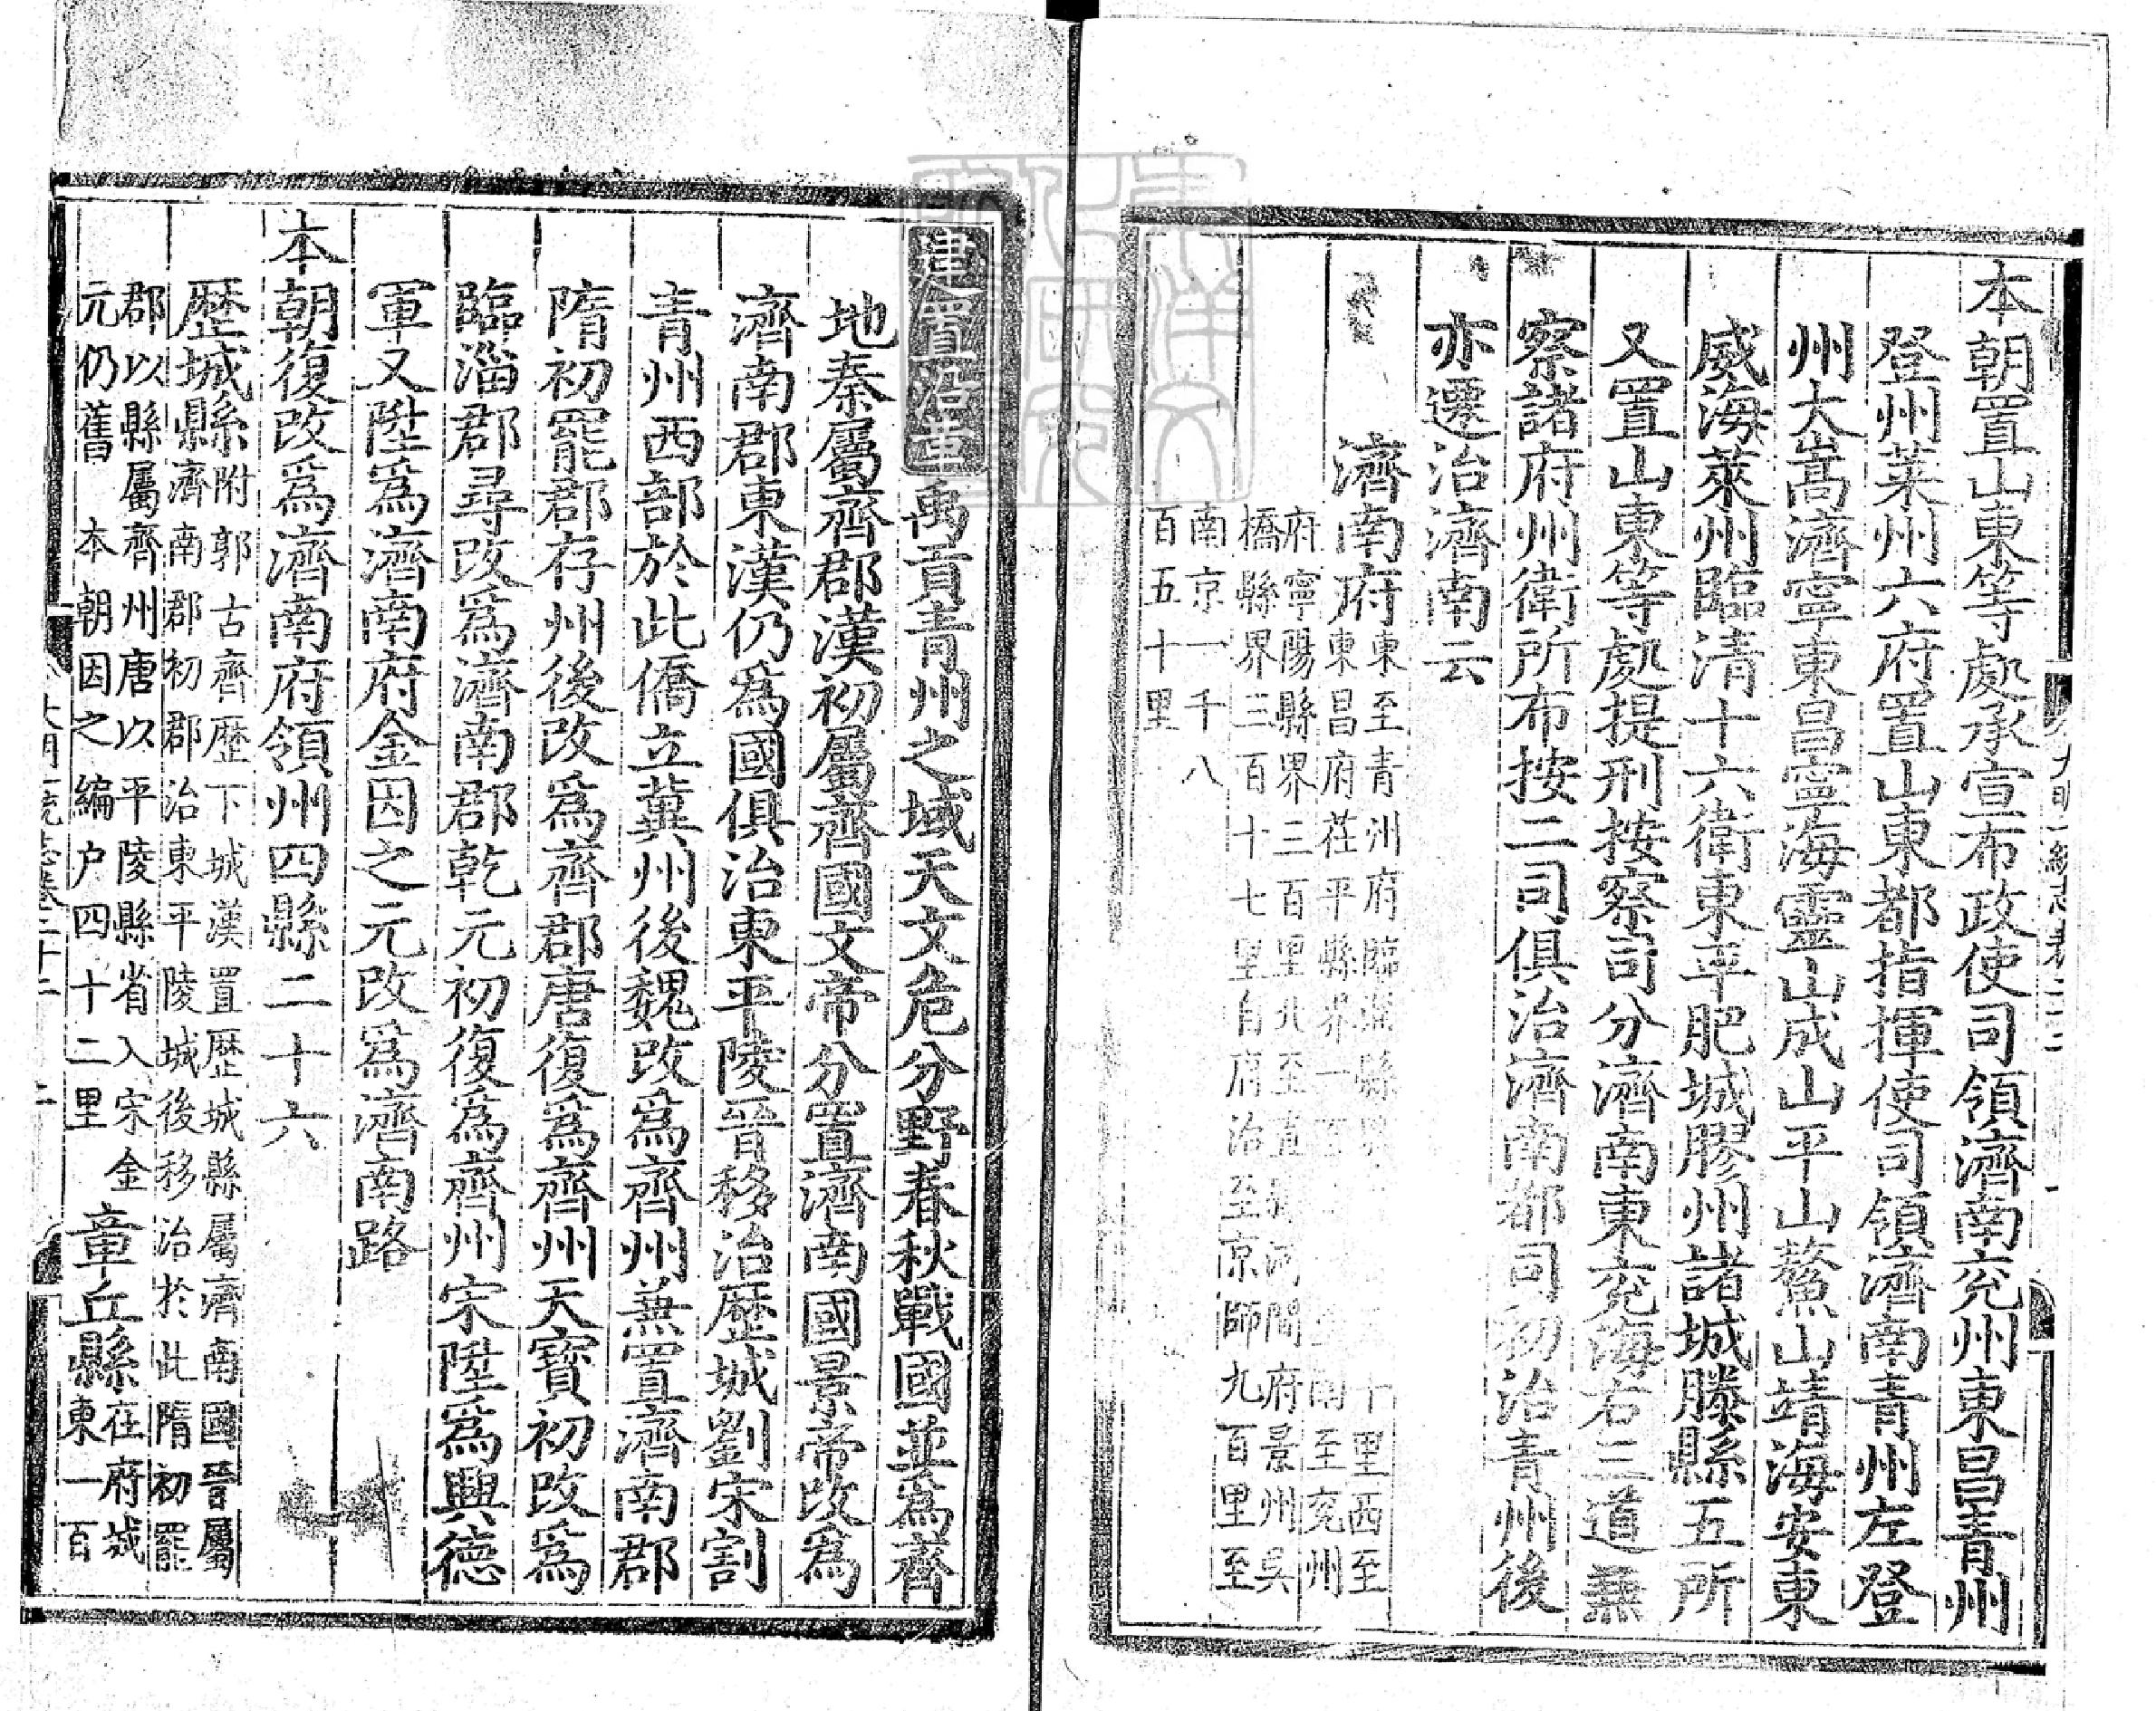 本朝置山東等處承宣布政使司領濟南兖州東昌青州
登州莱州六府置山東都指揮使司領濟南青州左登
州大嵩濟寧東昌寧海靈山成山平山鰲山靖海安東
威海萊州臨清十六衛東平肥城膠州諸城滕縣五所
又置山東等處提刑按察司分濟南東兖海右三道兼
察諸府州衛所布按二司俱治濟南都司初治青州後
亦遷治濟南云
濟南府
東至青州府臨淄縣界
十里西至
東昌府茌平縣界一百
南至兖州
府寧陽縣界三百里北至直隸河間府景州吳
橋縣界三百十七里自府治至京師九百里至
南京一千八
百五十里
建置沿革
禹貢青州之域天文危分野春秋戰國並爲齊
地秦屬齊郡漢初屬齊國文帝分置濟南國景帝改爲
濟南郡東漢仍爲國俱治東平陵晉移治歷城劉宋割
青州西部於此僑立冀州後魏改爲齊州兼置濟南郡
隋初罷郡存州後改爲齊郡唐復爲齊州天寶初改爲
臨淄郡尋改爲濟南郡乾元初復爲齊州宋陞爲興德
軍又陞爲濟南府金因之元改爲濟南路
本朝復改爲濟南府領州四縣二十六
歷城縣
附郭古齊歷下城漢置歷城縣屬濟南國晉屬
濟南郡初郡治東平陵城後移治於此隋初罷
郡以縣屬齊州唐以平陵縣省入宋金
元仍舊 本朝因之編户四十二里
章丘縣
在府城
東一百
大明一統志卷二十二 二